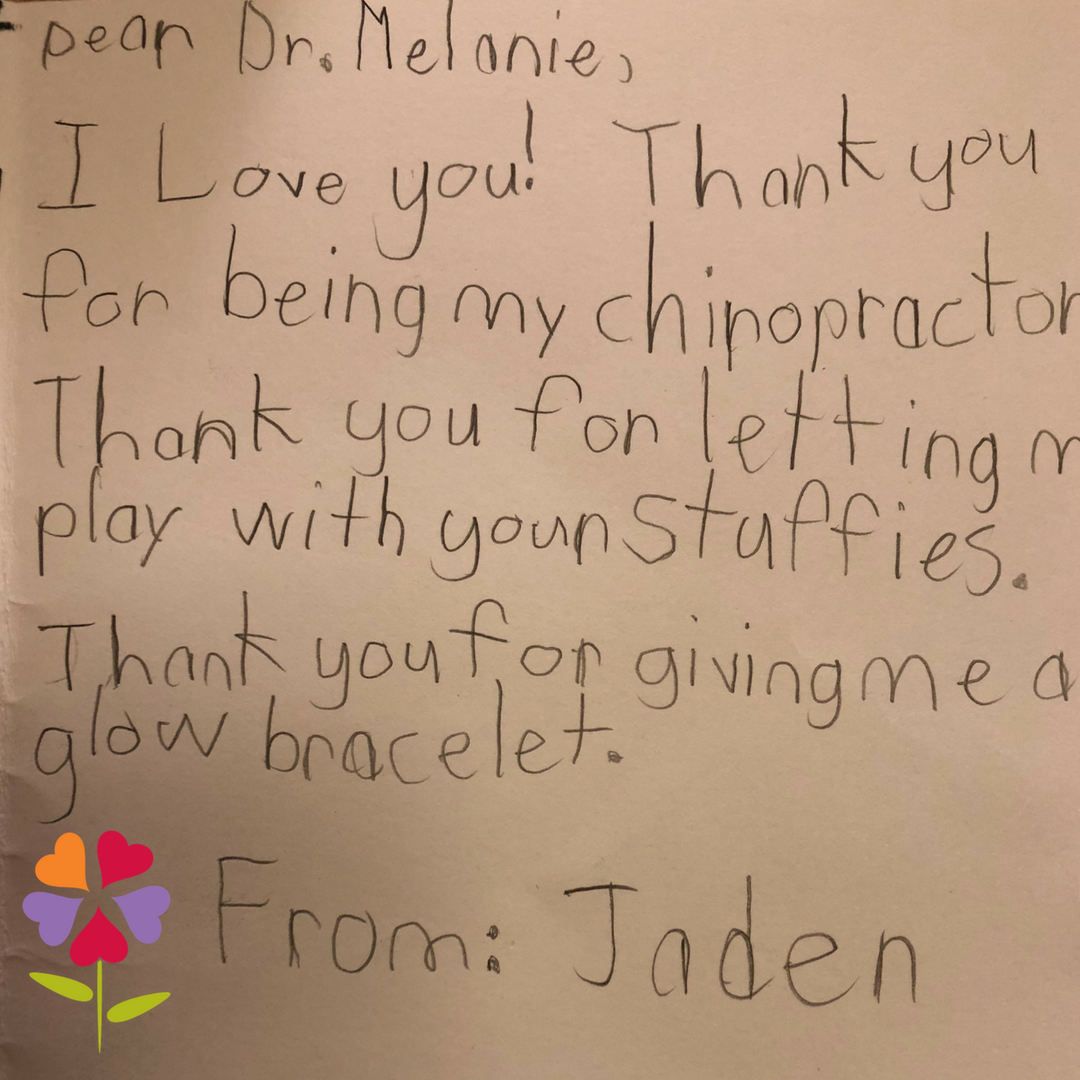 Dear Dr. Melanie,
I Love you! Thank you
for being my chiropractor
Thank you for letting m
play with your stuffies.
Thank you for giving me a
glow bracelet.
From: Jaden